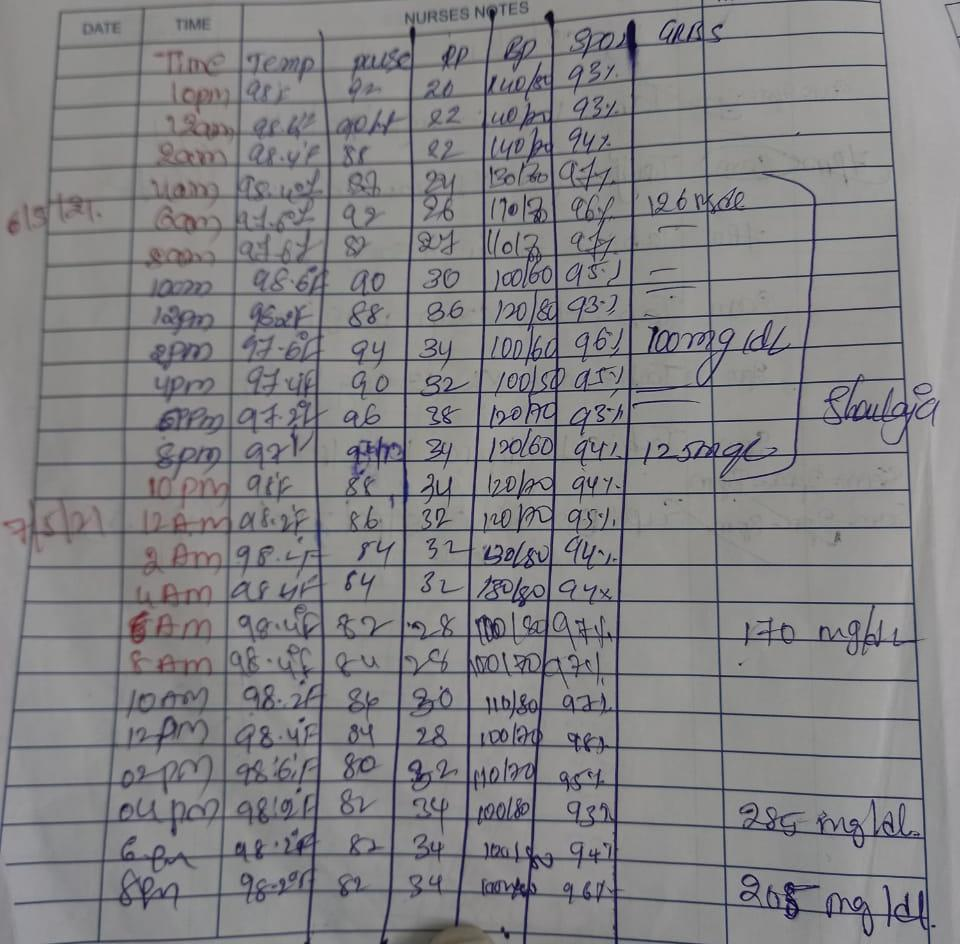 NURSES NOTES
DATE TIME
Time Temp pulse RR BP SPO2 GRBS
10pm 98F 92 20 140/80 93%
12am 98.6F 90 22 140/70 93%
2am 98.4F 88 22 140/70 94%
4am 98.4F 87 24 130/80 97%
6/5/21. 6am 97.6F 92 26 96%
8am 97.6F 82 27 97%
98.6F 90 30 100/60 95%
12pm 88 36 120/80 93%
2pm 97.6F 94 34 100/60 96% 100mg/dL
4pm 97.4F 90 32 100/50 95%
6pm 97.2F 96 38 120/70 93%
8pm 97F 34 120/60 94%
10pm 98F 88 34 120/70 94%
7/5/21 12AM 98.2F 86 32 120/70 95%
2AM 98.4F 84 32 130/80 94%
4AM 98.4F 84 32 94%
6AM 98.4°F 82 28 100/80 97% 170 mg/dL
8AM 98.4°F 84 28 100/70 97%
10AM 98.2F 86 30 110/80 97%
12PM 98.4F 84 28 100/70 98%
02pm 98.6F 80 32 110/70 95%
04pm 98.2F 82 34 100/80 93% 285 mg/dl.
6pm 98.2F 82 34 94%
8pm 98.2°F 82 34 96% 205 mg/dl.